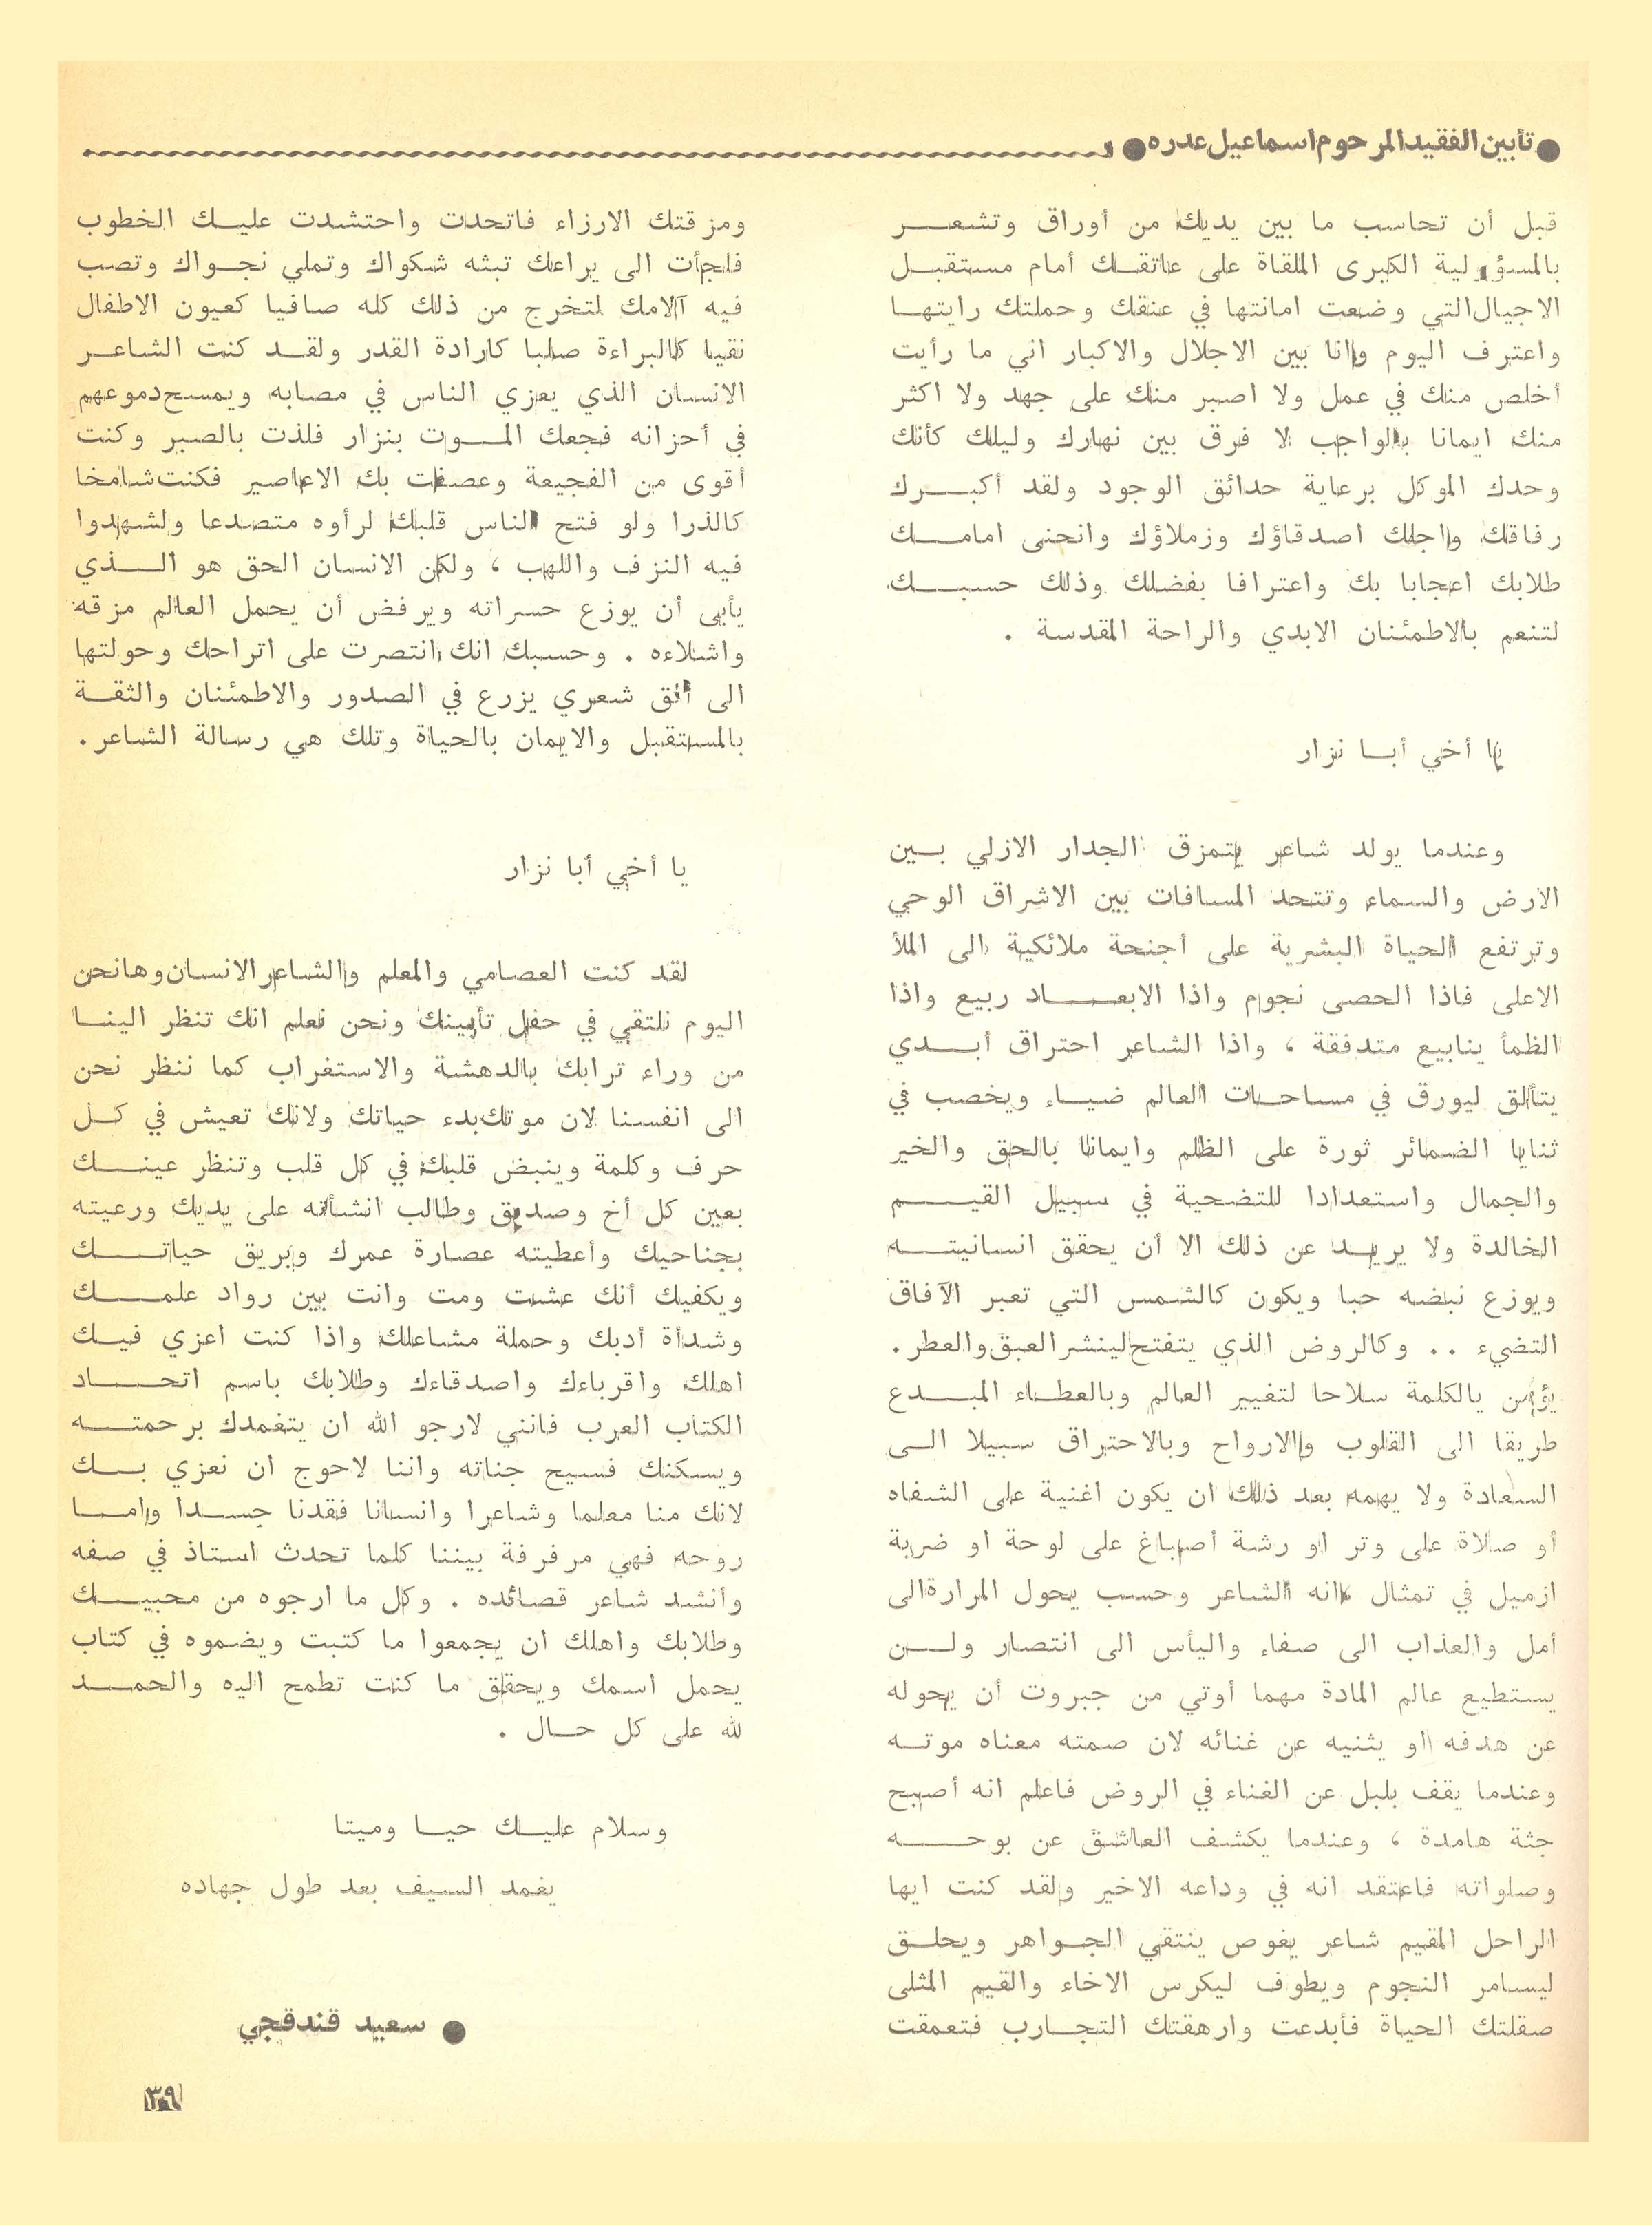 ● تأبين الفقيد المرحوم اسماعيل عدره ●
قبل أن تحاسب ما بين يديك من أوراق وتشعر
بالمسؤولية الكبرى الملقاة على عاتقك أمام مستقبل
الاجيال التي وضعت امانتها في عنقك وحملتك رايتها
واعترف اليوم وانا بين الاجلال والاكبار اني ما رأيت
أخلص منك في عمل ولا اصبر منك على جهد ولا اكثر
منك ايمانا بالواجب لا فرق بين نهارك وليلك كأنك
وحدك الموكل برعاية حدائق الوجود ولقد أكبرك
رفاقك واجلك اصدقاؤك وزملاؤك وانحنى امامك
طلابك اعجابا بك واعترافا بفضلك وذلك حسبك
لتنعم بالاطمئنان الابدي والراحة المقدسة .
يا أخي أبا نزار
وعندما يولد شاعر يتمزق الجدار الازلي بين
الارض والسماء وتتحد المسافات بين الاشراق الوحي
وترتفع الحياة البشرية على أجنحة ملائكية الى الملأ
الاعلى فاذا الحصى نجوم واذا الابعاد ربيع واذا
الظمأ ينابيع متدفقة ، واذا الشاعر احتراق أبدي
يتألق ليورق في مساحات العالم ضياء ويخصب في
ثنايا الضمائر ثورة على الظلم وايمانا بالحق والخير
والجمال واستعدادا للتضحية في سبيل القيم
الخالدة ولا يريد عن ذلك الا أن يحقق انسانيته
ويوزع نبضه حبا ويكون كالشمس التي تعبر الآفاق
التضيء .. وكالروض الذي يتفتح لينشر العبق والعطر.
يؤمن يالكلمة سلاحا لتغيير العالم وبالعطاء المبدع
طريقا الى القلوب والارواح وبالاحتراق سبيلا الى
السعادة ولا يهمه بعد ذلك ان يكون اغنية على الشفاه
أو صلاة على وتر او رشة أصباغ على لوحة او ضربة
ازميل في تمثال انه الشاعر وحسب يحول المرارة الى
أمل والعذاب الى صفاء واليأس الى انتصار ولن
يستطيع عالم المادة مهما أوتي من جبروت أن يحوله
عن هدفه او يثنيه عن غنائه لان صمته معناه موته
وعندما يقف بلبل عن الغناء في الروض فاعلم انه أصبح
جثة هامدة ، وعندما يكشف العاشق عن بوحه
وصلواته فاعتقد انه في وداعه الاخير ولقد كنت ايها
الراحل المقيم شاعر يغوص ينتقي الجواهر ويحلق
ليسامر النجوم ويطوف ليكرس الاخاء والقيم المثلى
صقلتك الحياة فأبدعت وارهقتك التجارب فتعمقت
ومزقتك الارزاء فاتحدت واحتشدت عليك الخطوب
فلجأت الى يراعك تبثه شكواك وتملي نجواك وتصب
فيه آلامك لتخرج من ذلك كله صافيا كعيون الاطفال
نقيا كالبراءة صلبا كارادة القدر ولقد كنت الشاعر
الانسان الذي يعزي الناس في مصابه ويمسح دموعهم
في أحزانه فجعك الموت بنزار فلذت بالصبر وكنت
أقوى من الفجيعة وعصفت بك الاعاصير فكنت شامخا
كالذرا ولو فتح الناس قلبك لرأوه متصدعا ولشهدوا
فيه النزف واللهب ، ولكن الانسان الحق هو الذي
يأبى أن يوزع حسراته ويرفض أن يحمل العالم مزقه
واشلاءه . وحسبك انك انتصرت على اتراحك وحولتها
الى شعري يزرع في الصدور والاطمئنان والثقة
بالمستقبل والايمان بالحياة وتلك هي رسالة الشاعر.
يا أخي أبا نزار
لقد كنت العصامي والمعلم والشاعر الانسان وهانحن
اليوم نلتقي في حفل تأبينك ونحن نعلم انك تنظر الينا
من وراء ترابك بالدهشة والاستغراب كما ننظر نحن
الى انفسنا لان موتك بدء حياتك ولانك تعيش في كل
حرف وكلمة وينبض قلبك في كل قلب وتنظر عينك
بعين كل أخ وصديق وطالب انشأته على يديك ورعيته
بجناحيك وأعطيته عصارة عمرك وبريق حياتك
ويكفيك أنك عشت ومت وانت بين رواد علمك
وشدأة أدبك وحملة مشاعلك واذا كنت اعزي فيك
اهلك واقرباءك واصدقاءك وطلابك باسم اتحاد
الكتاب العرب فانني لارجو الله ان يتغمدك برحمته
ويسكنك فسيح جناته واننا لاحوج ان نعزي بك
لانك منا معلما وشاعرا وانسانا فقدنا جسدا واما
روحه فهي مرفرفة بيننا كلما تحدث استاذ في صفه
وأنشد شاعر قصائده . وكل ما ارجوه من محبيك
وطلابك واهلك ان يجمعوا ما كتبت ويضموه في كتاب
يحمل اسمك ويحقق ما كنت تطمح اليه والحمد
لله على كل حال .
وسلام عليك حيا وميتا
يغمد السيف بعد طول جهاده
● سعيد قندقجي
٣٩